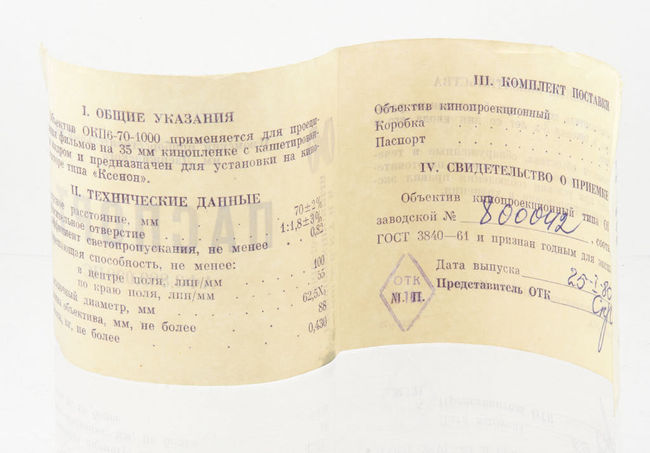 I. ОБЩИЕ УКАЗАНИЯ
ОКП6-70-1000 применяется для проеци-
фильмов на 35 мм кинопленке с кашетирован-
и предназначен для установки на кино-
типа «Ксенон».
II. ТЕХНИЧЕСКИЕ ДАННЫЕ
расстояние, мм 70±2%
отверстие 1:1,8±3%
светопропускания, не менее 0,82
способность, не менее:
в центре поля, лин/мм 100
по краю поля, лин/мм 55
диаметр, мм 62,5
объектива, мм, не более 88
кг, не более 0,430
III. КОМПЛЕКТ ПОСТАВКИ
Объектив кинопроекционный
Коробка
Паспорт
IV. СВИДЕТЕЛЬСТВО О ПРИЕМКЕ
Объектив кинопроекционный типа
заводской № 800042
ГОСТ 3840—61 и признан годным для
Дата выпуска
Представитель ОТК
ОТК